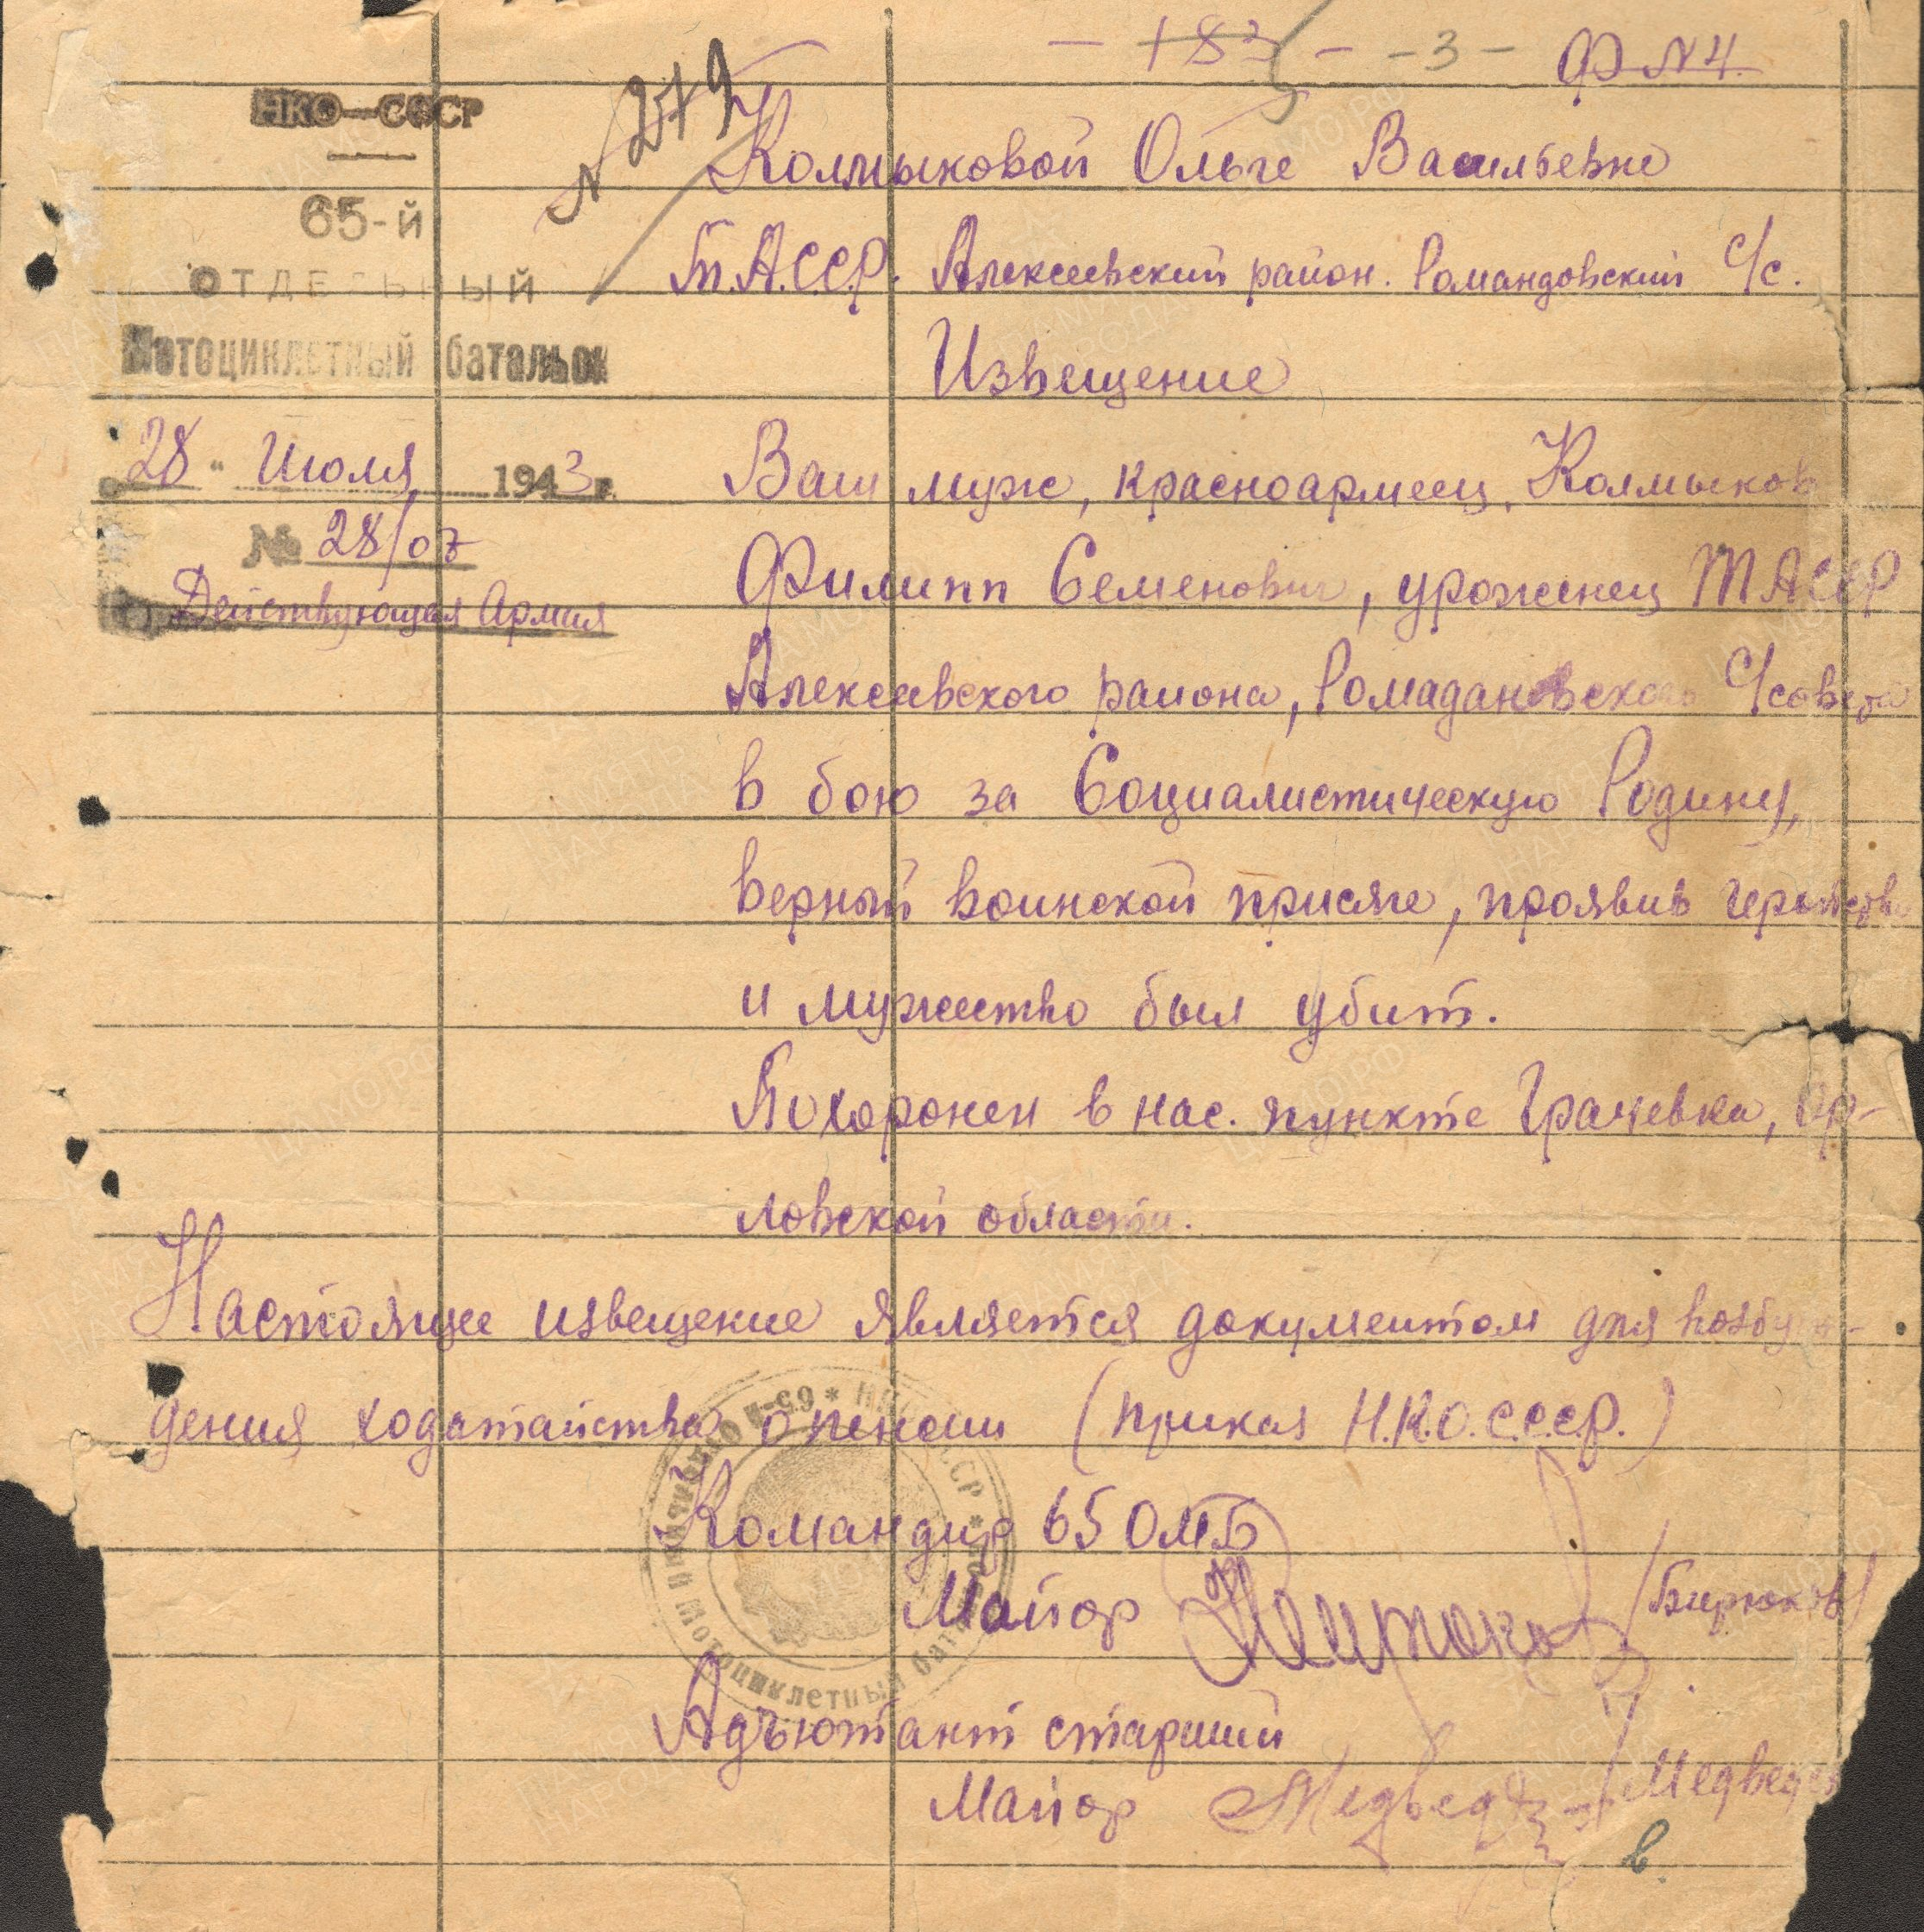 - 183 - - 3 - Ф N 4.
НКО—СССР
N 279
Колмыковой Ольге Васильевне
65-й
Т.А.С.С.Р. Алексеевский район. Романдовский С/с.
ОТДЕЛЬНЫЙ
Мотоциклетный батальон
Извещение
28 " Июля 1943 г.
Ваш муж, красноармеец, Колмыков
№ 28/07
Филипп Семенович, уроженец ТАССР
Действующая Армия
Алексеевского района, Ромадановского С/совета
в бою за Социалистическую Родину,
верный воинской присяге, проявив геройство
и мужество был убит.
Похоронен в нас. пункте Грачевка, Ор-
ловской области.
Настоящее извещение является документом для возбуж-
дения ходатайства о пенсии (приказ Н.К.О.С.С.С.Р.)
Командир 65 ОМБ
Майор /Бирюков/
Адъютант старший
Майор Медведев /Медведев
в.
65-й Отдельный мотоциклетный батальон * НКО СССР *
ПАМЯТЬ НАРОДА
ЦАМО.РФ